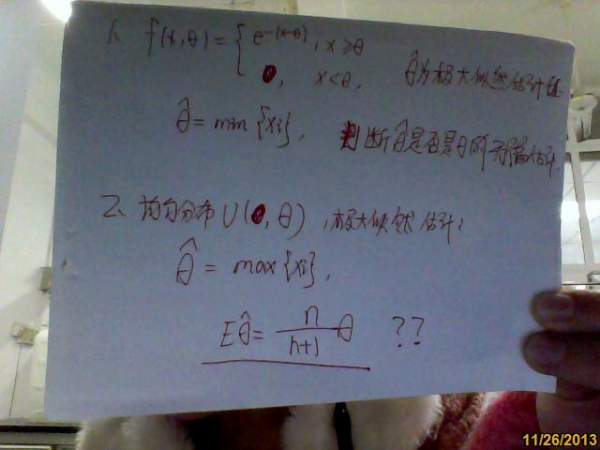 1. f(x,θ) = { e^{-(x-θ)}, x≥θ
0, x<θ. θ̂为极大似然估计值
θ̂ = min {xi}, 判断θ̂是否是θ的无偏估计.
2、均匀分布 U(0, θ), 极大似然估计:
θ̂ = max {xi},
Eθ̂ = n/(n+1) θ ??
11/26/2013